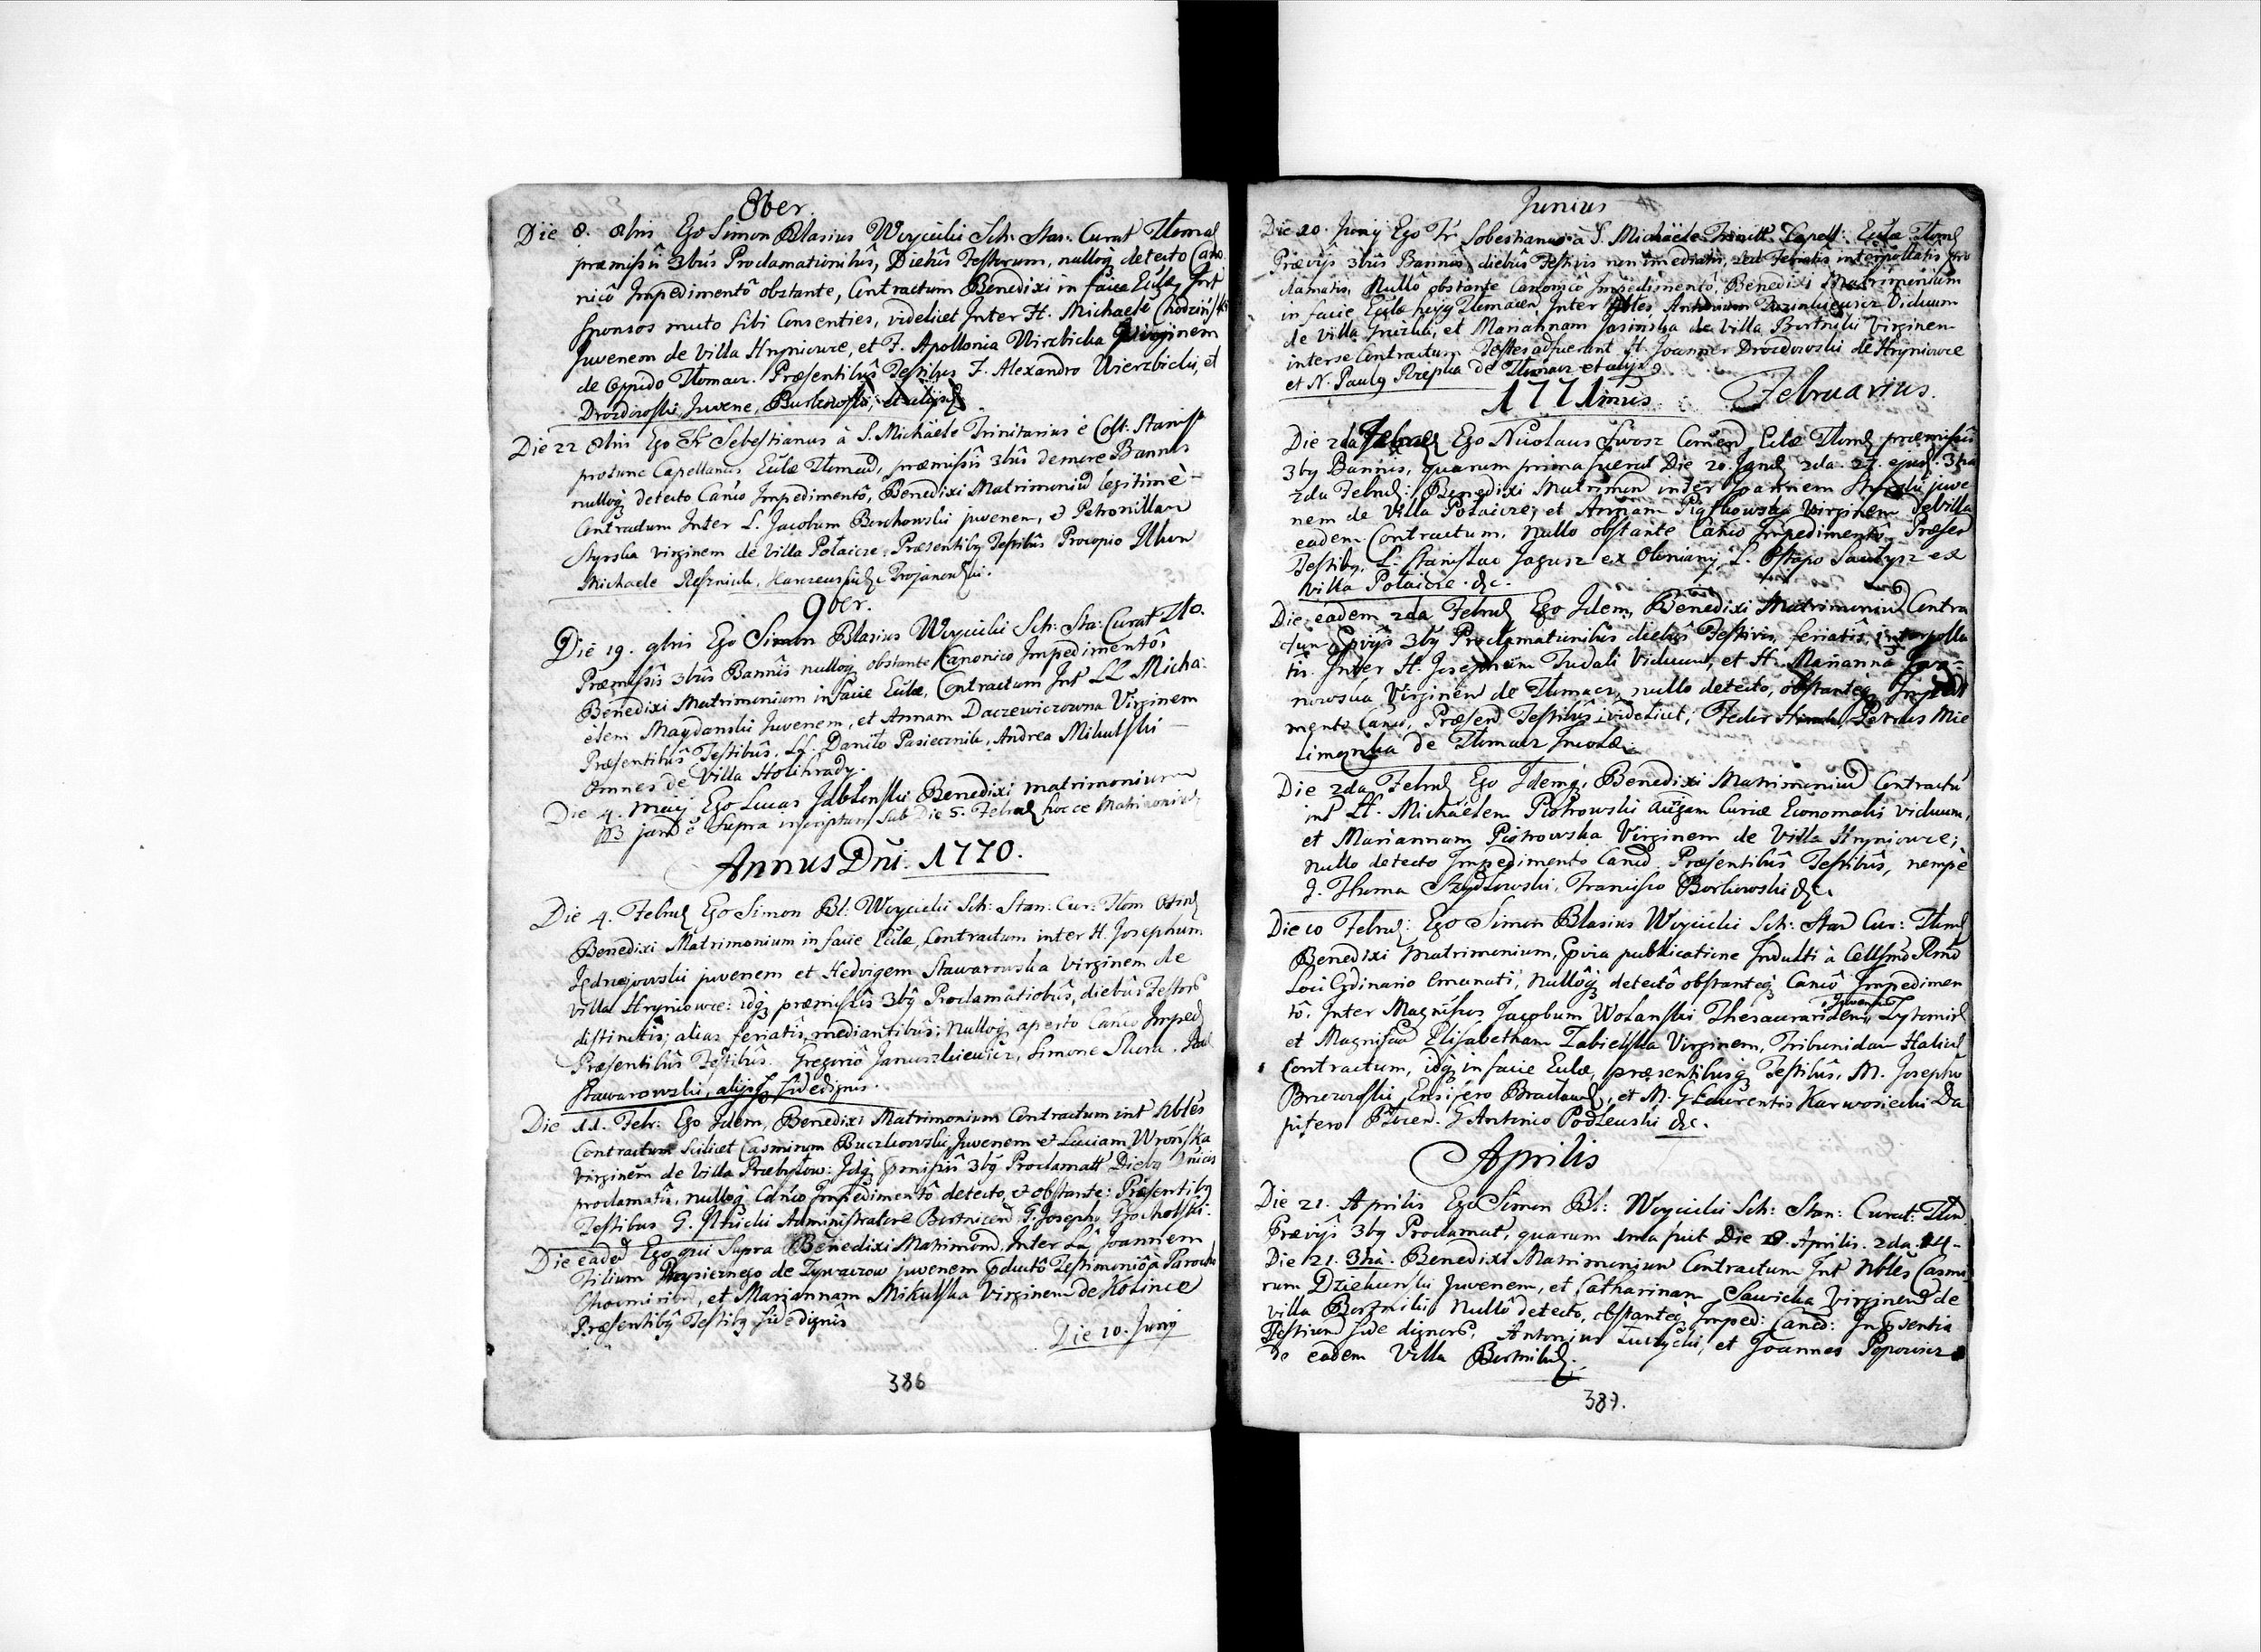 8ber.
Die 8. 8bris Ego Simon Blasius Woycicki Sch: Stan: Curat Tłomac
præmissîs 3bus Proclamationibus, Diebus Festivum, nulloq, detecto Cano
nicô Impedimentô obstante, Contractum Benedixi in facie Eccłæ, Int
Sponsos mutó sibi Consenties, videlicet Inter H. Michaele
Juvenem de Villa Hryniowce, et F. Apollonia Wirzbicka Virginem
de Oppido Tłomacz. Præsentibûs Testibus F. Alexandro Wierzbicki, et
Drozdowski Juvene,
Die 22 8bris Ego Fr Sebestianus à S. Michäele Trinitarius è Coll: Stanisł
protunc Capellanus Eccłæ Tłomac, præmissîs 3bus de more Bannis
nulloq detecto Canico Impedimentô, Benedixi Matrimoniu legitimè
Contractum Inter L. Jacobum Borkowski juvenem, et Petronillam
Styrska virginem de Villa Połaicze. Præsentibq Testibûs Procopio
Michaele Reszniuk,
9ber.
Die 19. 9bris Ego Simon Blasius Woycicki Sch: Sta: Curat Tło.
Præmissîs 3bûs Bannîs nulloq, obstante Canonico Impedimentô,
Benedixi Matrimonium in facie Eccłæ, Contractum Int LL Micha:
elem Maydanski Juvenem, et Annam Daczewiczowna Virginem
Præsentibûs Testibûs, LL. Daniło Pasiecznik, Andrea Mikulski
Omnes de Villa Holihrady.
Die 4. Maij Ego Lucas Jabłonski Benedixi matrimonium
supra inscriptum sub Die 5. Febru hocce Matrimoniu
Annus Dñi. 1770.
Die 4. Febru Ego Simon Bł: Woycicki Sch: Stan: Cur: Tłom
Benedixi Matrimonium in facie Eccłæ, Contractum inter H. Josephum
Jędrzejowski juvenem et Hedvigem Stawarowska Virginem de
Villa Hryniowce: idq præmissîs 3bq Proclamatiobûs, diebûs Festivis
distinctis; alias feriatîs, mediantibûs; nulloq aperto Canico Imped
Præsentibûs Testibûs. Gregoriô Januszkiewicz, Simone
Stawarowski, alijsq fide dignis.
Die 11. Febr: Ego Idem, Benedixi Matrimonium Contractum int Nbles
Contractum scilicet Casmirum Buczkowski, Juvenem et Luciam Wrońska
Virginem de Villa Przebyłow: Idq præmissîs 3bq Proclamatt Diebq Dnicis
proclamatîs, nulloq Canico Impedimentô detecto, et obstante: Præsentibq
Testibus G. Administratore Bortnicens G. Josepho Grocholski.
Die eadem Ego, qui Supra Benedixi Matrimoniu Inter Lab Joannem
Filium de Zywaczow juvenem Testimoniô à Parocho
et Mariannam Mikulska Virginem de Kolince
Præsentibq Testibq fide dignis
Die 20. Junij
386
Junius
Die 20. Junij Ego Fr Sobestianus à S. Michäele Trinitt. Capell: Eccłæ Tłom
Prævijs 3bus Bannis diebus Festivis non imediatis, sed Feriatis interpollatis pro
clamatis, Nullô obstante Canonico Impedimentô, Benedixi Matrimonium
in facie Eccłæ hujq Tłomacen, Inter Nbles Antonium Viduum
de Villa Gruszka, et Mariannam Jasinska de Villa Bortniki Virginem
inter se Contractum Testes adfuerunt H. Joannes Drozdowski de Hryniowce
et N. Paulq Rzepka de Tłomacz et alij.
1771mus. Februarius.
Die 2da Febru Ego Nicolaus Comend Eccłæ Tłom præmissis
3bq Bannis, quarum prima fuerat Die 20. Janu 2da. 27. ejusd. 3tia
2da Febru: Benedixi Matrimon inter Joannem juve
nem de Villa Połaicze, et Annam Virginem de villa
eadem Contractum, Nullo obstante Canico Impedimentô. Præsen
Testibq, L. Stanislao Jagusz ex Oleniany, L. Ostapo ex
Villa Połaicze. &c.
Die eadem 2da Febru Ego Idem, Benedixi Matrimoniu Contra
ctum prvijs 3bq Proclamationibus diebus Festivis, feriatis, interpolla
tis. Inter H. Josephum Viduum, et H. Marianna
nowska Virginem de Tłumacz, nullo detecto, obstanteq Impedi
mento Canico, Præsen Testibûs videlicet, Fedir Petrus Mie
de Tłumacz Incolæ.
Die 2da Febru Ego Idemq; Benedixi Matrimoniu Contractu
int LL. Michäelem Piotrowski Aurigam Curiæ Economalis viduum,
et Mariannam Piotrowska Virginem de Villa Hryniowce;
Nullo detecto Impedimento Canico. Præsentibûs Testibûs, nempè
G. Thoma Szydłowski, Francisco Borkowski &c.
Die 10 Febru: Ego Simon Blasius Woycicki Sch: Stan Cur: Tłum
Benedixi Matrimonium, prvia publicatione Indulti à Cellsmo Rmo
Loci Ordinario Emanati, Nullôq detectô obstanteq Canicô Impedimen
tô. Inter Magnificos Jacobum Wolanski Thesauraridem Juvenem Zytomir
et Magnificam Elisabetham Zabielska Virginem, Tribunidam Halici
Contractum, idq in facie Eccłæ, præsentibusq Testibûs, M. Josepho
Ensifero Bracław, et M. G Laurentio Karwosiecki Da
pifero G Antonio Podlewski &c.
Aprilis
Die 21. Aprilis Ego Simon Bł: Woycicki Sch: Stan: Curat: Tłum
Prævijs 3bq Proclamat, quarum 1ma fuit Die Aprilis. 2da. 14-
Die 21. 3tia. Benedixi Matrimonium Contractum Int Nbles Casmi
rum Dziekunski Juvenem, et Catharinam Sawicka Virginem de
villa Bortniki, Nullô detecto, obstanteq Imped: Canico: In psentia
Testium fide dignors, Antonius et Joannes Popowicz
de eadem Villa Bortniki.
387.